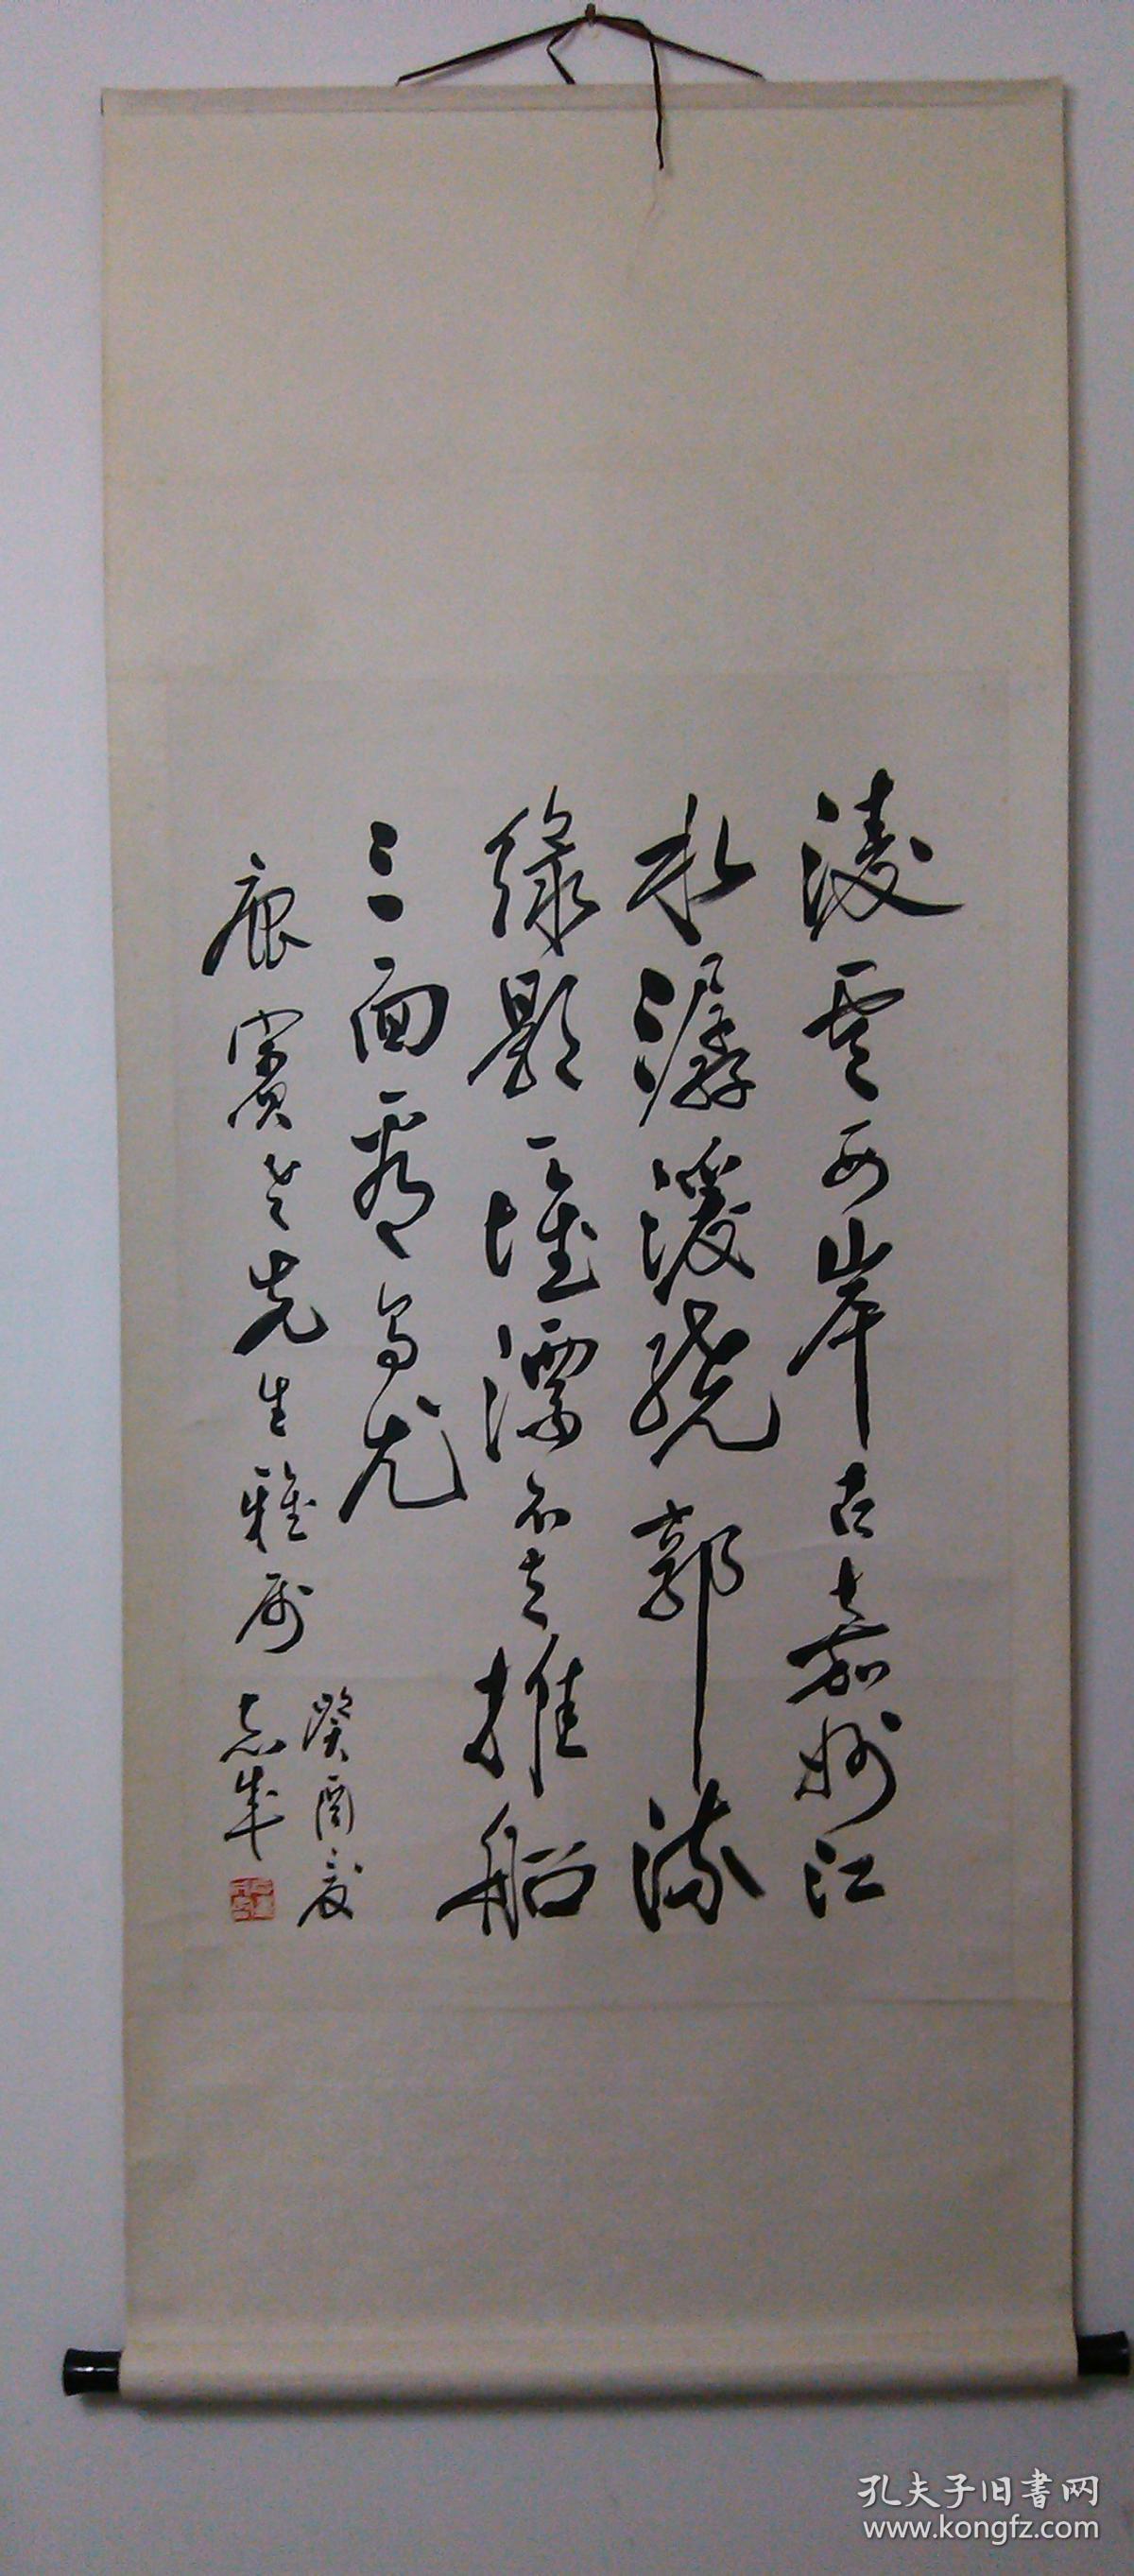 凌雲西岸古嘉州江
水潺湲绕郭流
綠影一堆漂不去推船
三面看烏尤
康賓老先生雅属
癸酉夏
志成
孔夫子旧書网
www.kongfz.com